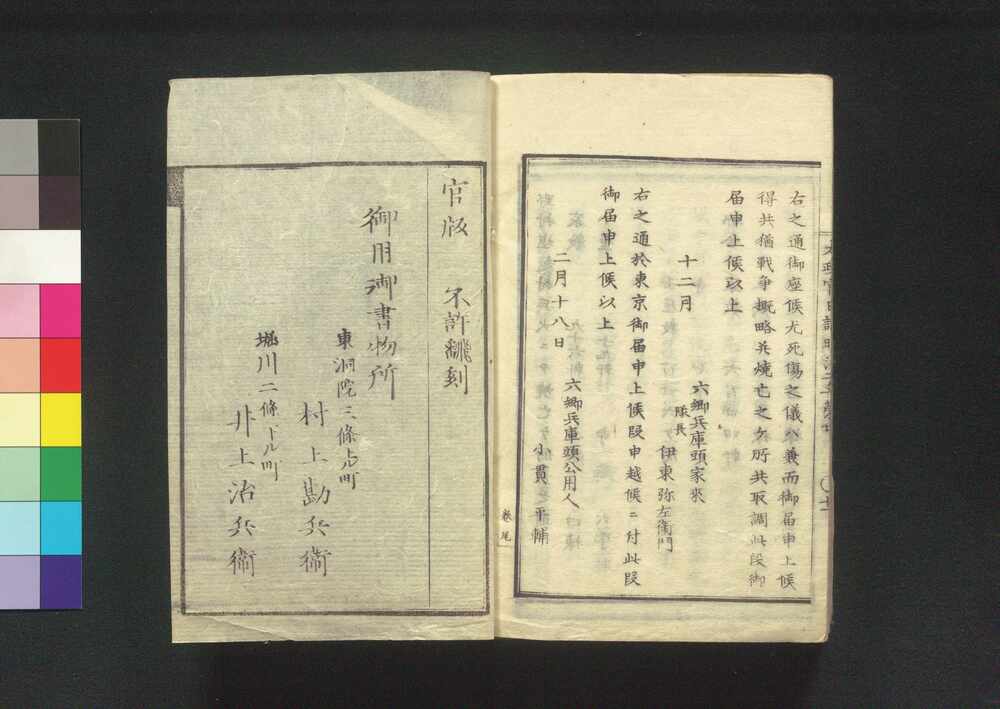 右之通御座候尤死傷之儀ハ兼而御届申上候
得共猶戦争概略并焼亡之ケ所共取調此段御
届申上候以上
十二月
六郷兵庫頭家来
隊長
伊東弥左衛門
右之通於東京御届申上候段申越候ニ付此段
御届申上候以上
二月十八日
六郷兵庫頭公用人
小貫平輔
巻尾
官版 不許翻刻
御用御書物所
東洞院三條上ル町
村上勘兵衛
堀川二條下ル町
井上治兵衛